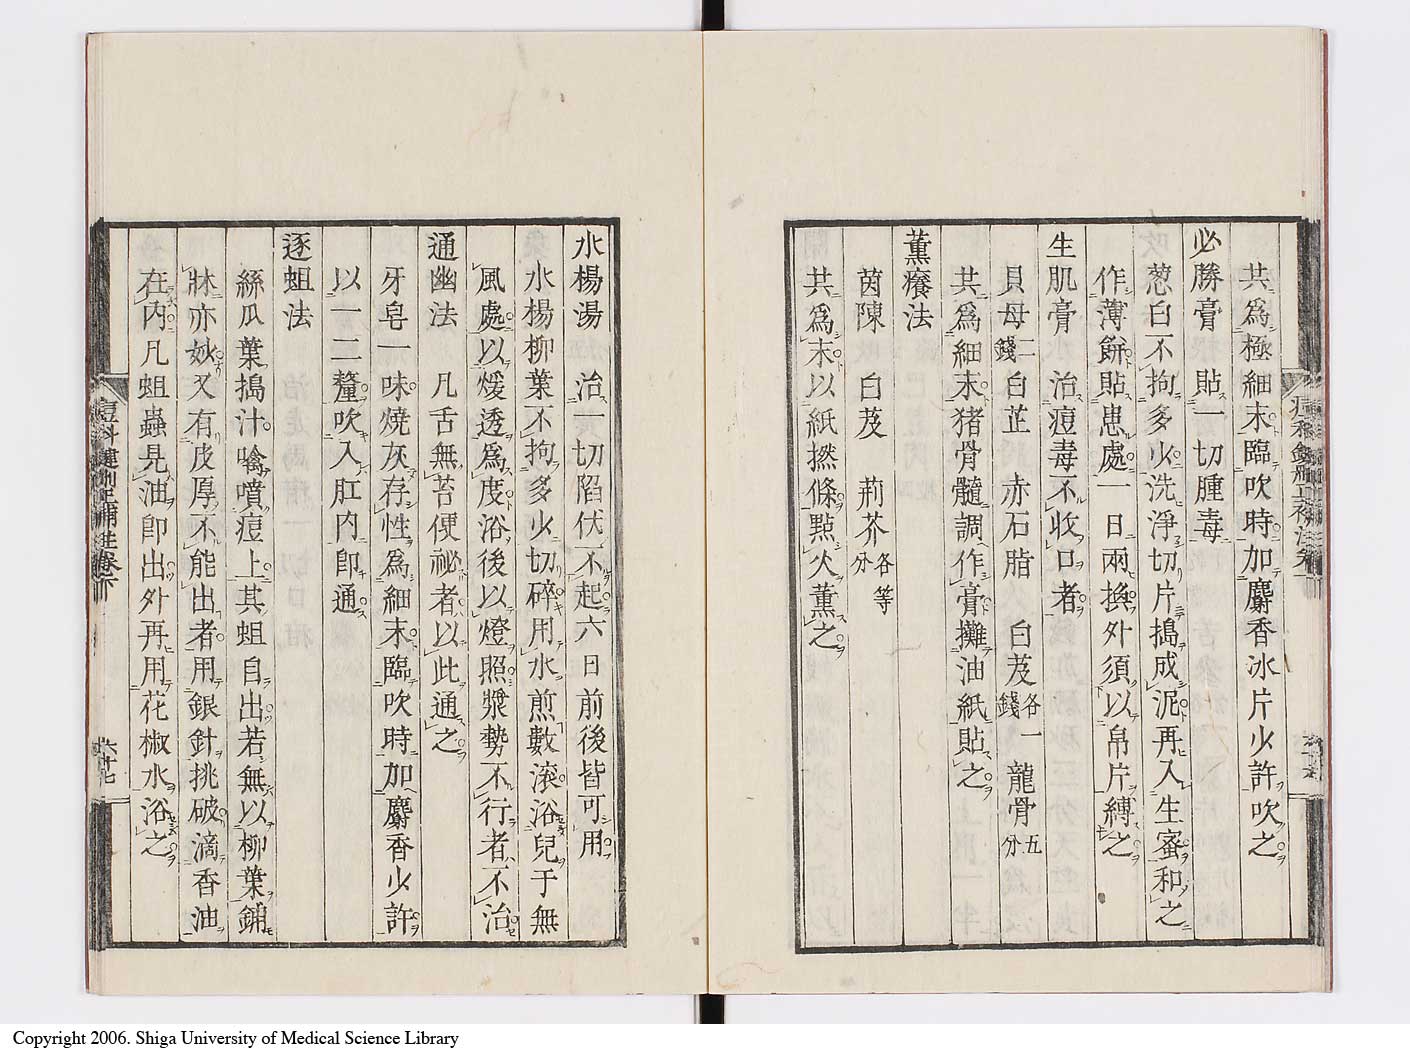 共爲極細末臨吹時加麝香冰片少許吹之
必勝膏貼一切腫毒
葱白不拘多少洗淨切片搗成泥再入生蜜和之
作薄餅貼患處一日兩換外須以帛片縛之
生肌膏治痘毒不收口者
貝母二錢白芷　赤石脂　白芨各一錢龍骨五分
共爲細末猪骨髓調作膏攤油紙貼之
薰癢法
茵陳　白芨　荊芥各等分
共爲末以紙撚條點火薰之
水楊湯　治一切陷伏不起六日前後皆可用
水楊柳葉不拘多少切碎用水煎數滚浴兒于無
風處以煖透爲度浴後以燈照漿勢不行者不治
通幽法　凡舌無苔便祕者以此通之
牙皂一味燒灰存性爲細末臨吹時加麝香少許
以一二釐吹入肛内卽通
逐蛆法
絲瓜葉搗汁噙噴痘上其蛆自出若無以柳葉鋪
牀亦妙又有皮厚不能出者用銀針挑破滴香油
在内凡蛆蟲見油卽出外再用花椒水浴之
痘科鍵刪正補註卷下
六十七
Copyright 2006. Shiga University of Medical Science Library